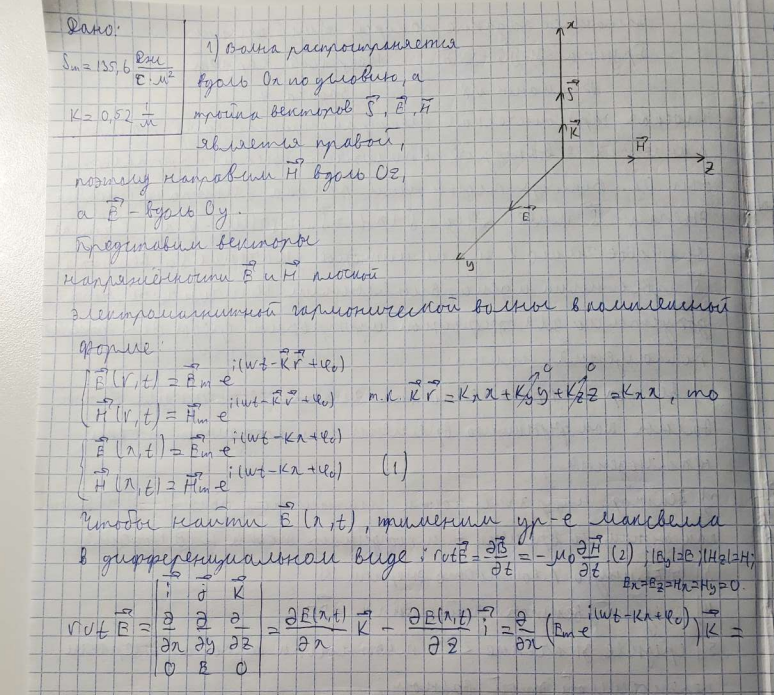 Дано:
Sm = 135,6 Дж/(с·м²)
K = 0,52 1/м
1) Волна распространяется
вдоль Ox по условию, а
тройка векторов S⃗, E⃗, H⃗
является правой,
поэтому направим H⃗ вдоль Oz,
а E⃗ - вдоль Oy.
x
S⃗
K⃗
H⃗
z
E⃗
y
Представим векторы
напряжённости E⃗ и H⃗ плоской
электромагнитной гармонической волны в комплексной
форме:
E⃗(r,t) = E⃗m e^{i(ωt - K⃗r⃗ + φ₀)}
H⃗(r,t) = H⃗m e^{i(ωt - K⃗r⃗ + φ₀)} т.к. K⃗r⃗ = Kₓx + K_y y (0) + K_z z (0) = Kₓx, то
E⃗(x,t) = E⃗m e^{i(ωt - Kx + φ₀)}
H⃗(x,t) = H⃗m e^{i(ωt - Kx + φ₀)} (1)
Чтобы найти E⃗(x,t), применим ур-е Максвелла
в дифференциальном виде: rot E⃗ = ∂B⃗/∂t = -μ₀ ∂H⃗/∂t (2); |Ey|=E; |Hz|=H;
Ex=Ez=Hx=Hy=0.
rot E⃗ = | i⃗ j⃗ K⃗ ; ∂/∂x ∂/∂y ∂/∂z ; 0 E 0 | = ∂E(x,t)/∂x K⃗ - ∂E(x,t)/∂z i⃗ = ∂/∂x (Em e^{i(ωt - Kx + φ₀)}) K⃗ =